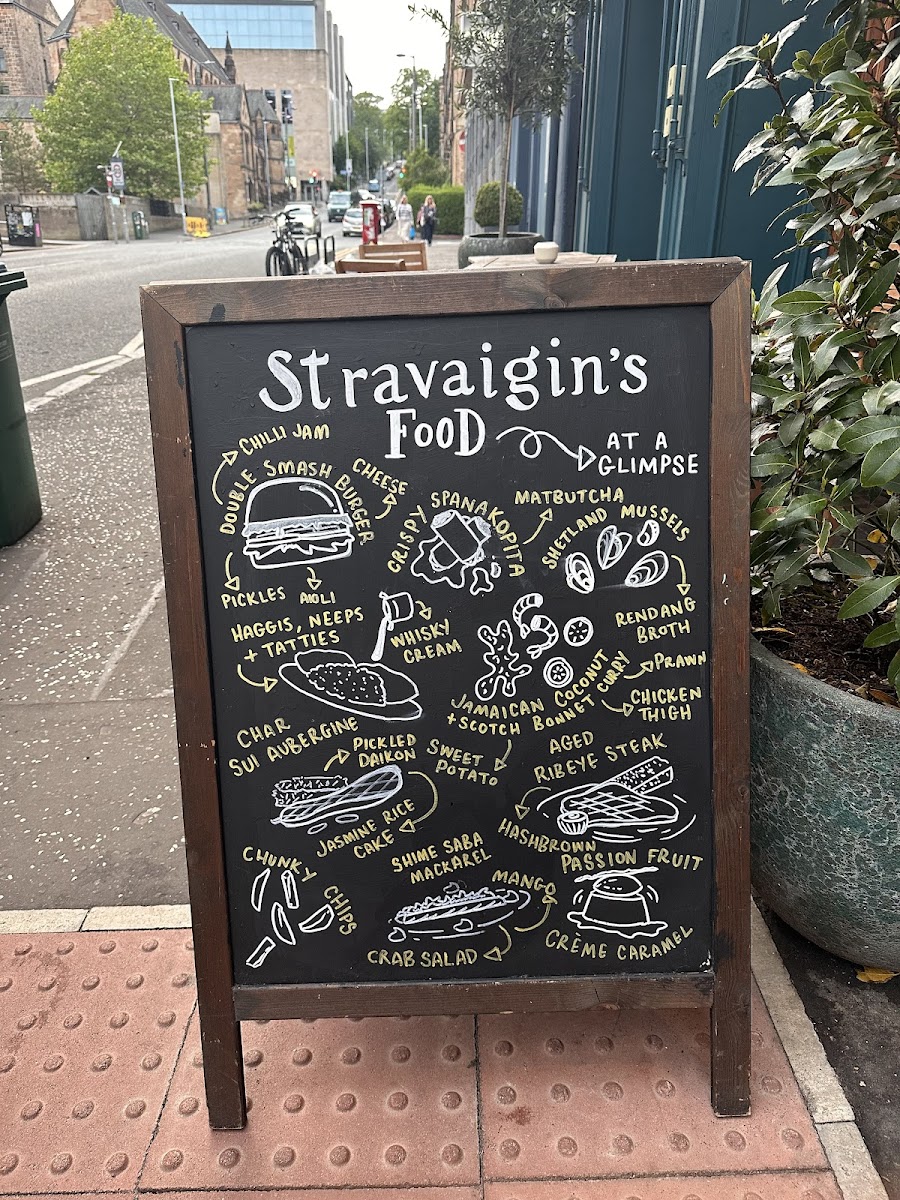 Stravaigin's
FOOD
AT A
GLIMPSE
CHILLI JAM
DOUBLE SMASH BURGER
CHEESE
PICKLES
AIOLI
CRISPY SPANAKOPITA
MATBUTCHA
SHETLAND MUSSELS
RENDANG
BROTH
HAGGIS, NEEPS
+ TATTIES
WHISKY
CREAM
JAMAICAN COCONUT
+ SCOTCH BONNET CURRY
PRAWN
CHICKEN
THIGH
SWEET
POTATO
CHAR
SUI AUBERGINE
PICKLED
DAIKON
JASMINE RICE
CAKE
AGED
RIBEYE STEAK
HASHBROWN
CHUNKY
CHIPS
SHIME SABA
MACKAREL
MANGO
CRAB SALAD
PASSION FRUIT
CRÈME CARAMEL